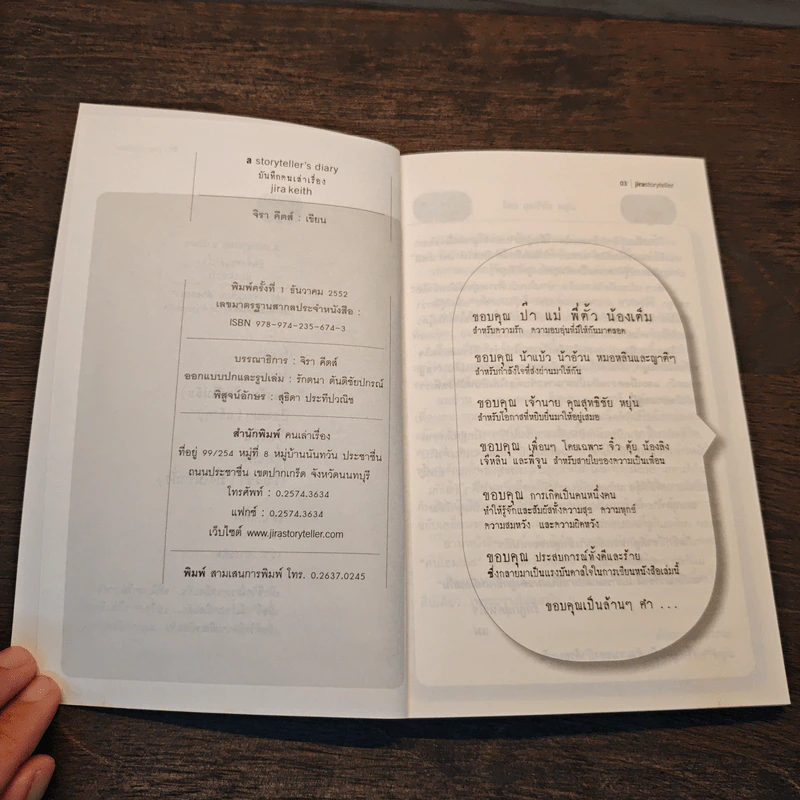 a storyteller's diary
บันทึกคนเล่าเรื่อง
jira keith
จิรา คีตส์ : เขียน
พิมพ์ครั้งที่ 1 ธันวาคม 2552
เลขมาตรฐานสากลประจำหนังสือ :
ISBN 978-974-235-674-3
บรรณาธิการ : จิรา คีตส์
ออกแบบปกและรูปเล่ม : รักตนา ตันติชัยปกรณ์
พิสูจน์อักษร : สุธิดา ประทีปวณิช
สำนักพิมพ์ คนเล่าเรื่อง
ที่อยู่ 99/254 หมู่ที่ 8 หมู่บ้านนันทวัน ประชาชื่น
ถนนประชาชื่น เขตปากเกร็ด จังหวัดนนทบุรี
โทรศัพท์ : 0.2574.3634
แฟกซ์ : 0.2574.3634
เว็บไซต์ www.jirastoryteller.com
พิมพ์ สามเสนการพิมพ์ โทร. 0.2637.0245
03 jirastoryteller
ขอบคุณ ป๊า แม่ พี่ตั้ว น้องเต็ม
สำหรับความรัก ความอบอุ่นที่มีให้กันมาตลอด
ขอบคุณ น้าแบ้ว น้าอ้วน หมอหลินและญาติๆ
สำหรับกำลังใจที่ส่งผ่านมาให้กัน
ขอบคุณ เจ้านาย คุณสุทธิชัย หยุ่น
สำหรับโอกาสที่หยิบยื่นมาให้อยู่เสมอ
ขอบคุณ เพื่อนๆ โดยเฉพาะ จิ๋ว คุ้ย น้องลิง
เจ๊หลิน และพี่จูน สำหรับสายใยของความเป็นเพื่อน
ขอบคุณ การเกิดเป็นคนหนึ่งคน
ทำให้รู้จักและสัมผัสทั้งความสุข ความทุกข์
ความสมหวัง และความผิดหวัง
ขอบคุณ ประสบการณ์ทั้งดีและร้าย
ซึ่งกลายมาเป็นแรงบันดาลใจในการเขียนหนังสือเล่มนี้
ขอบคุณเป็นล้านๆ คำ ...